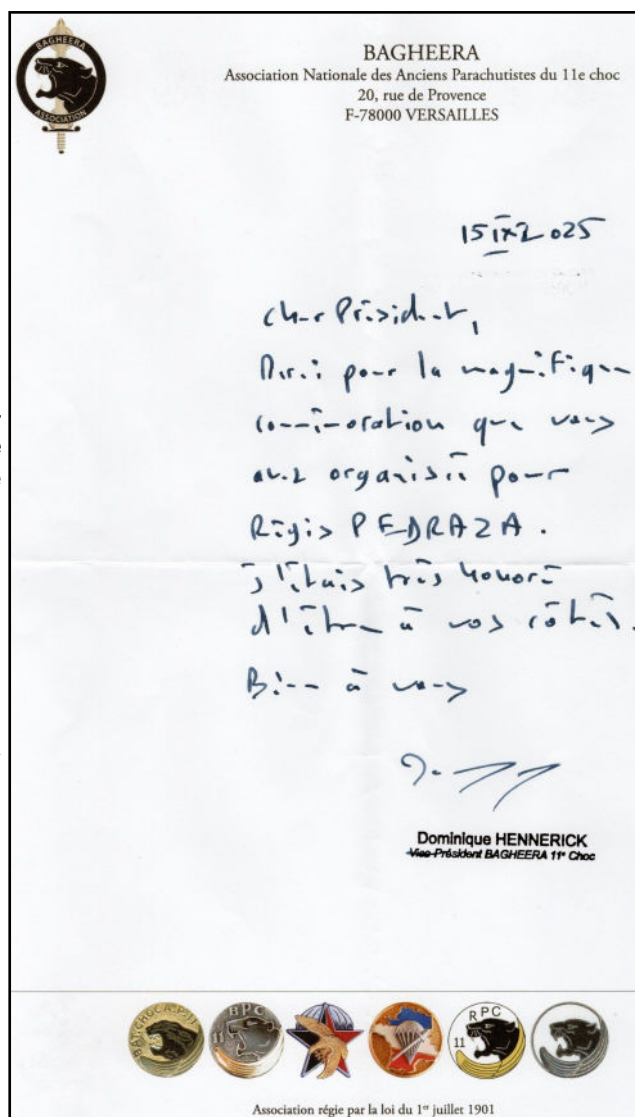 BAGHEERA
ASSOCIATION
BAGHEERA
Association Nationale des Anciens Parachutistes du 11e choc
20, rue de Provence
F-78000 VERSAILLES
15 IX 2025
Cher Président,
Merci pour la magnifique
commémoration que vous
avez organisée pour
Régis PEDRAZA.
j'étais très honoré
d'être à vos côtés.
Bien à vous
Dominique HENNERICK
Vice-Président BAGHEERA 11e Choc
BAT. CHOC A.P.
11 BPC
11 RPC
Association régie par la loi du 1er juillet 1901